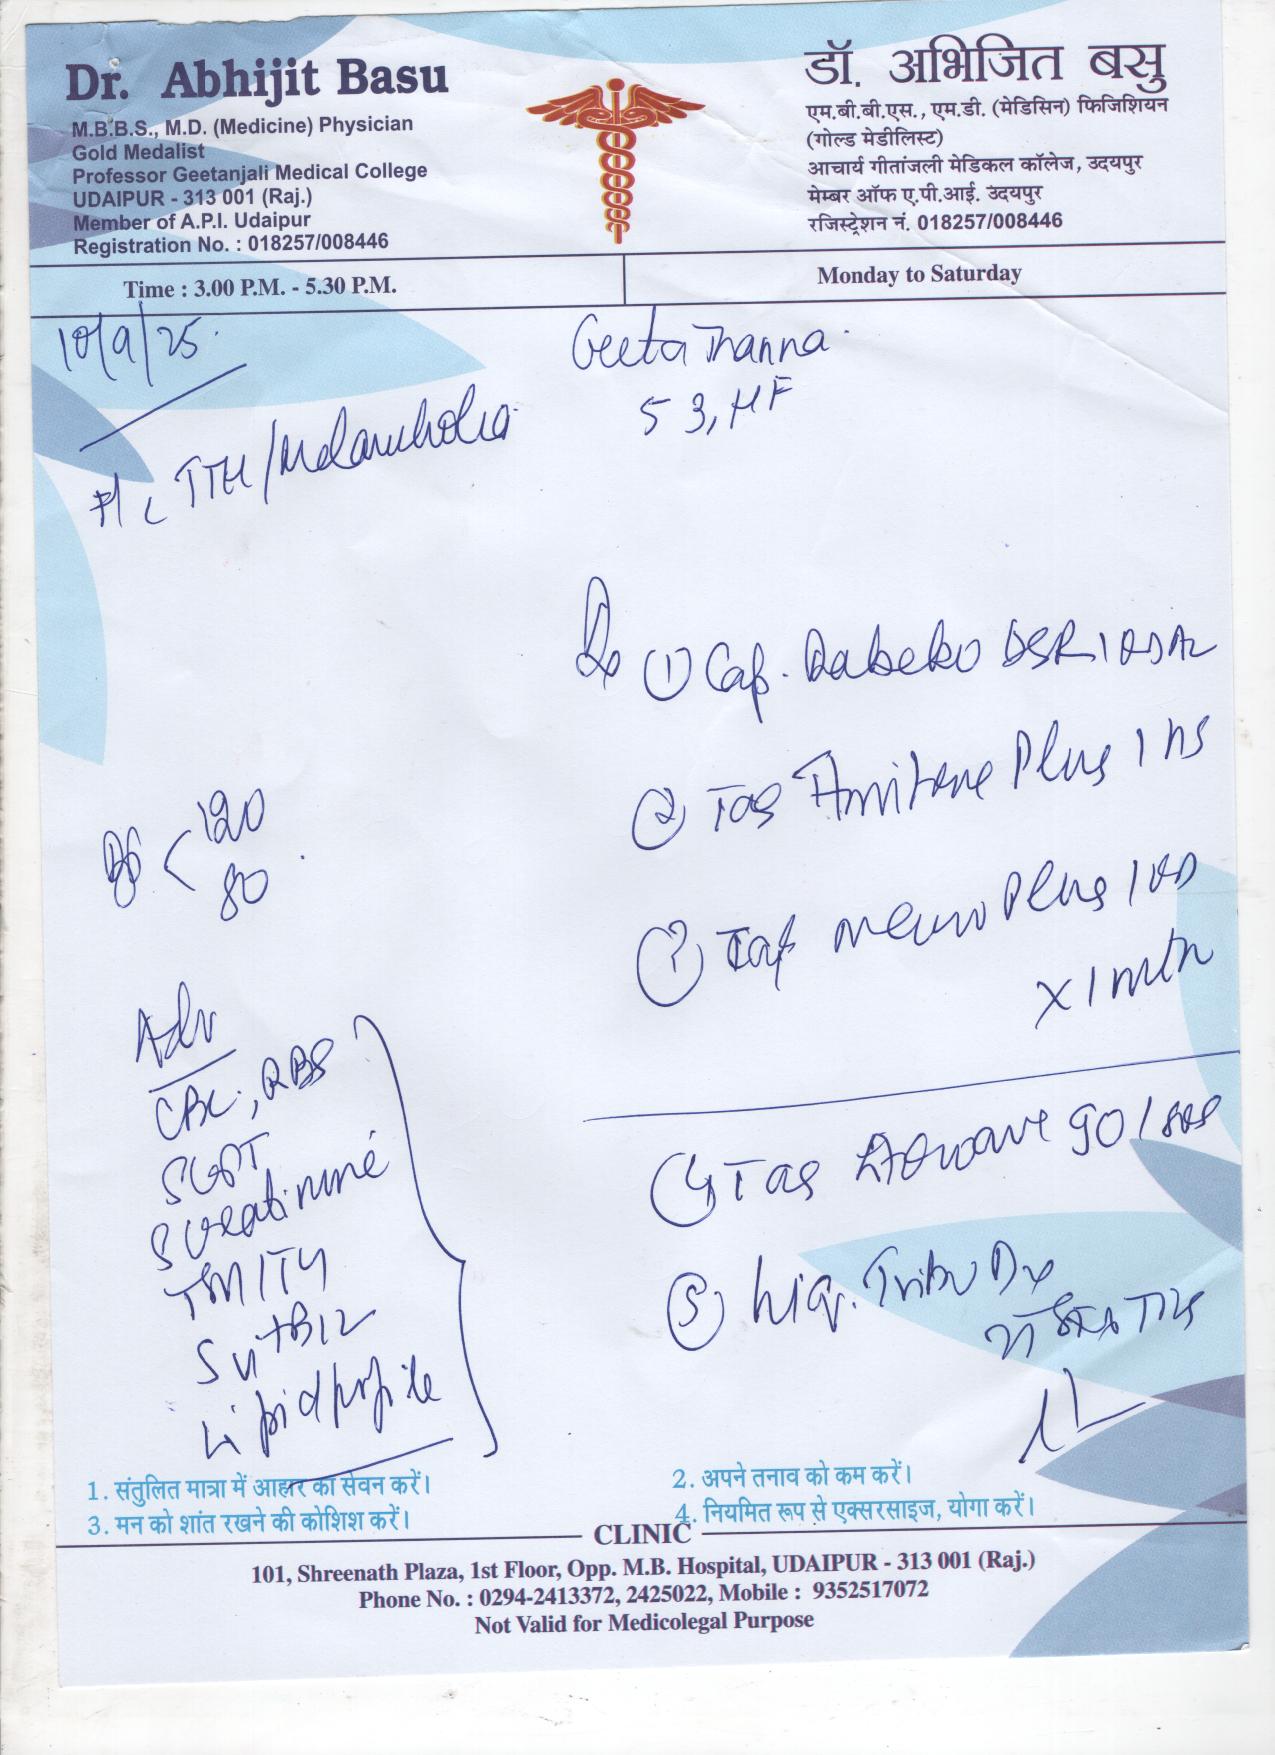 Dr. Abhijit Basu
M.B.B.S., M.D. (Medicine) Physician
Gold Medalist
Professor Geetanjali Medical College
UDAIPUR - 313 001 (Raj.)
Member of A.P.I. Udaipur
Registration No. : 018257/008446
डॉ. अभिजित बसु
एम.बी.बी.एस., एम.डी. (मेडिसिन) फिजिशियन
(गोल्ड मेडीलिस्ट)
आचार्य गीतांजली मेडिकल कॉलेज, उदयपुर
मेम्बर ऑफ ए.पी.आई. उदयपुर
रजिस्ट्रेशन नं. 018257/008446
Time : 3.00 P.M. - 5.30 P.M.
Monday to Saturday
10/9/25
Geeta Thanna
53, HF
TTH/Melancholia
Rx ① Cap. Rabeko DSR 1
② Tab Plus 1 HS
③ Tab Neuro Plus 1 OD
x 1 mth
120
80
Adv
CBC, RBS
SGPT
S creatinine
S vit B12
Lipid profile
④ Tab 90 1
⑤ Liq. Dx
1. संतुलित मात्रा में आहार का सेवन करें।
2. अपने तनाव को कम करें।
3. मन को शांत रखने की कोशिश करें।
4. नियमित रूप से एक्सरसाइज, योगा करें।
CLINIC
101, Shreenath Plaza, 1st Floor, Opp. M.B. Hospital, UDAIPUR - 313 001 (Raj.)
Phone No. : 0294-2413372, 2425022, Mobile : 9352517072
Not Valid for Medicolegal Purpose